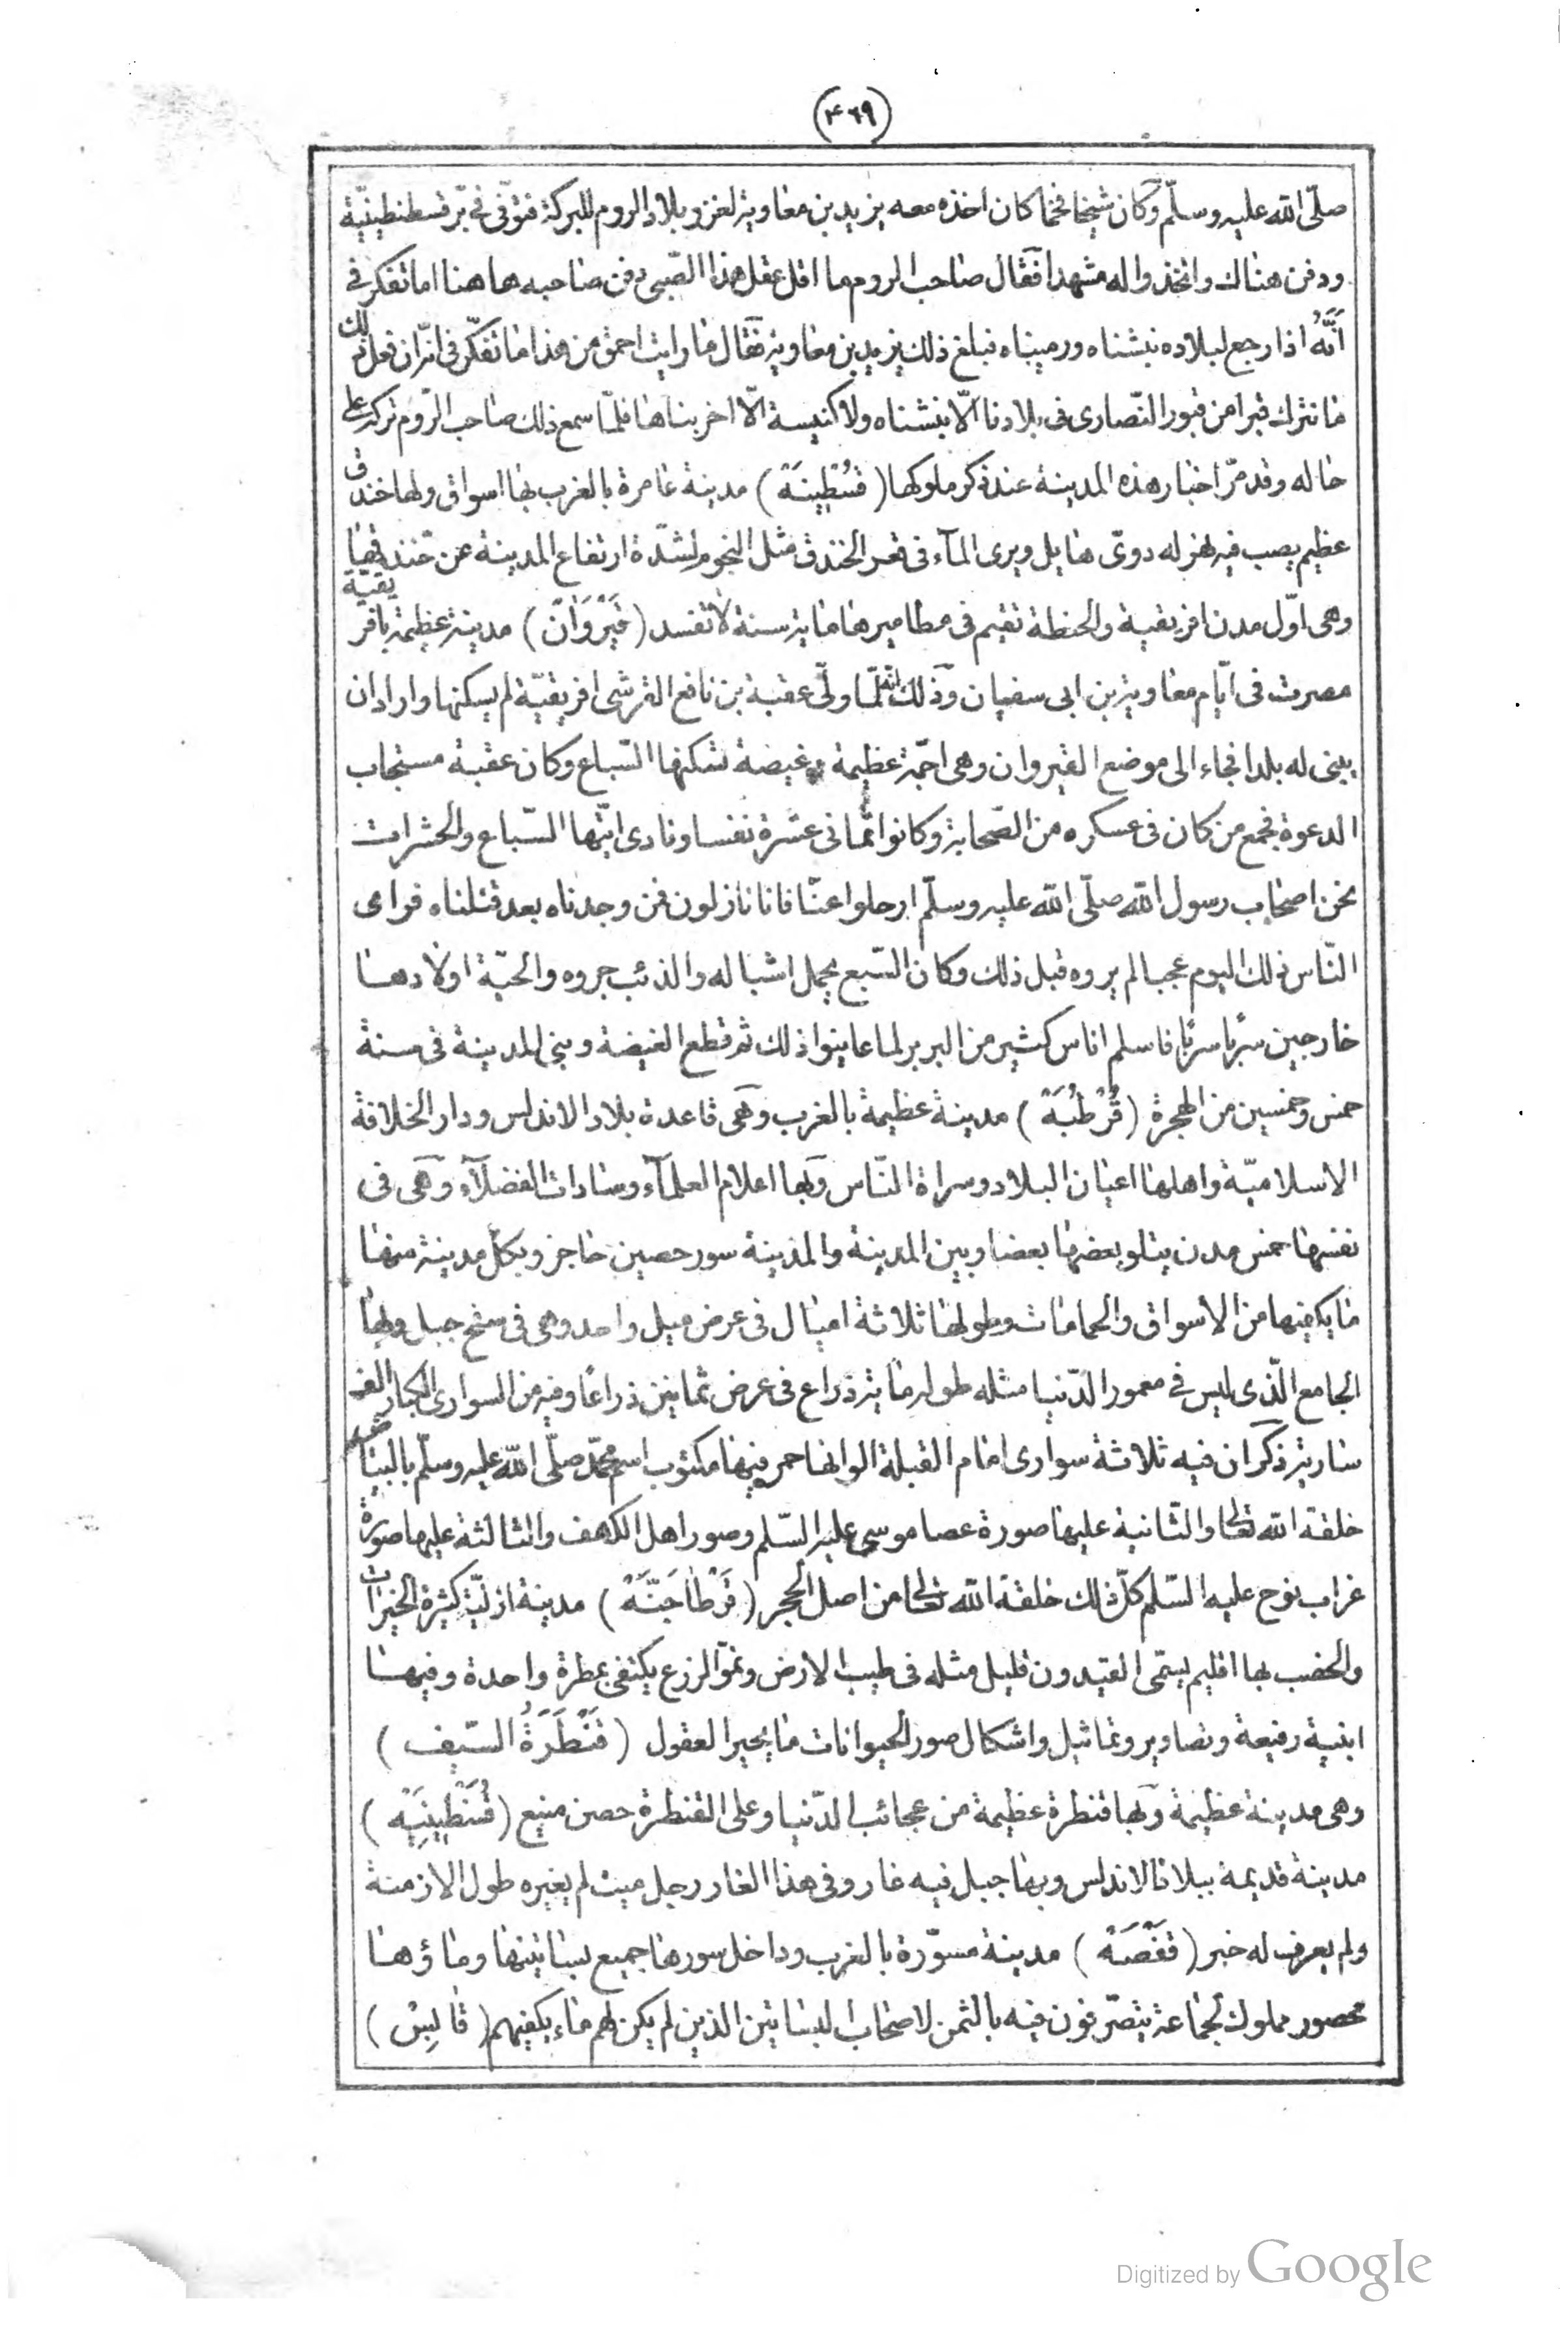 (۴۶۹)
صلّى الله عليه وسلّم وكان شيخا فخما كان اخذه معه يزيد بن معاوية لغزو بلاد الروم للبركة فتوفّى فى برّ قسطنطينيّة
ودفن هناك واتخذوا له مشهدا فقال صاحب الروم ما اقل عقل هذا الصّبى دفن صاحبه هاهنا اما تفكر فى
اَنَّهُ اذا رجع لبلاده نبشناه ورميناه فبلغ ذلك يزيد بن معاوية فقال ما رايت احمق من هذا اما تفكّر فى انّه ان فعل ذلك
ما نترك قبرا من قبور النّصارى فى بلادنا الّا نبشناه ولا كنيسة الّا اخربناها فلمّا سمع ذلك صاحب الرّوم تركه على
حاله وقد مرّ اخبار هذه المدينة عند ذكر ملوكها (قسُطِينَة) مدينة عامرة بالغرب بها اسواق ولها خندق
عظيم يصب فيه نهر له دوىّ هايل ويرى المآء فى قعر الخندق مثل النجوم لشدّة ارتفاع المدينة عن خندقها
وهى اوّل مدن افريقية والحنطة تقيم فى مطاميرها ماية سنة لا تفسد (قَيْرَوَانّ) مدينة عظيمة بافريقية
مصرت فى ايّام معاوية بن ابى سفيان وذلك انه لمّا ولّى عقبة بن نافع القرشى افريقيّة لم يسكنها واراد ان
يبنى له بلدا فجاء الى موضع القيروان وهى اجمّة عظيمة وغيضة تسكنها السّباع وكان عقبة مستجاب
الدعوة فجمع من كان فى عسكره من الصّحابة وكانوا ثمانى عشرة نفسا ونادى ايّتها السّباع والحشرات
نحن اصحاب رسول الله صلّى الله عليه وسلّم ارحلوا عنّا فانا نازلون فمن وجدناه بعد قتلناه فراى
النّاس ذلك اليوم عجبا لم يروه قبل ذلك وكان السّبع يحمل اشباله والذئب جروه والحيّة اولادها
خارجين سربا سربا فاسلم اناس كثير من البربر لما عاينوا ذلك ثم قطع الغيضة وبنى المدينة فى سنة
خمس وخمسين من الهجرة (قُرْطُبَة) مدينة عظيمة بالغرب وهى قاعدة بلاد الاندلس ودار الخلافة
الاسلاميّة واهلها اعيان البلاد وسراة النّاس وبها اعلام العلمآء وسادات الفضلآء وهى فى
نفسها خمس مدن يتلو بعضها بعضا وبين المدينة والمدينة سور حصين حاجز وبكل مدينة منها
ما يكفيها من الاسواق والحمامات وطولها ثلاثة اميال فى عرض ميل واحد وهى فى سفح جبل وبها
الجامع الّذى ليس فى معمور الدّنيا مثله طوله ماية ذراع فى عرض ثمانين ذراعًا وفيه من السوارى الكبار الف
سارية ذكر ان فيه ثلاثة سوارى امام القبلة الوانها حمر فيها مكتوب اسم محمّد صلّى الله عليه وسلّم بالبياض
خلقة الله تعالى والثانية عليها صورة عصا موسى عليه السّلم وصور اهل الكهف والثالثة عليها صورة
غراب نوح عليه السّلم كلّ ذلك خلقة الله تعالى من اصل الحجر (قَرْطاجَنّة) مدينة ازليّة كثيرة الخيرات
والخصب بها اقليم يسمّى القيدون قليل مثله فى طيب الارض ونموّ الزرع يكتفى بمطرة واحدة وفيها
ابنية رفيعة وتصاوير وتماثيل واشكال صور الحيوانات ما يحير العقول (قَنْطَرَةُ السّيف)
وهى مدينة عظيمة وبها قنطرة عظيمة من عجائب الدّنيا وعلى القنطرة حصن منيع (قُسَنْطِينِيَه)
مدينة قديمة ببلاد الاندلس وبها جبل فيه غار وفى هذا الغار رجل ميت لم يغيره طول الازمنة
ولم يعرف له خبر (قَفْصَة) مدينة مسوّرة بالغرب وداخل سورها جميع بساتينها وماؤها
محصور مملوك لجماعة يتصّرفون فيه بالثمن لاصحاب البساتين الذين لم يكن لهم ماء يكفيهم (قابِسْ)
Digitized by Google